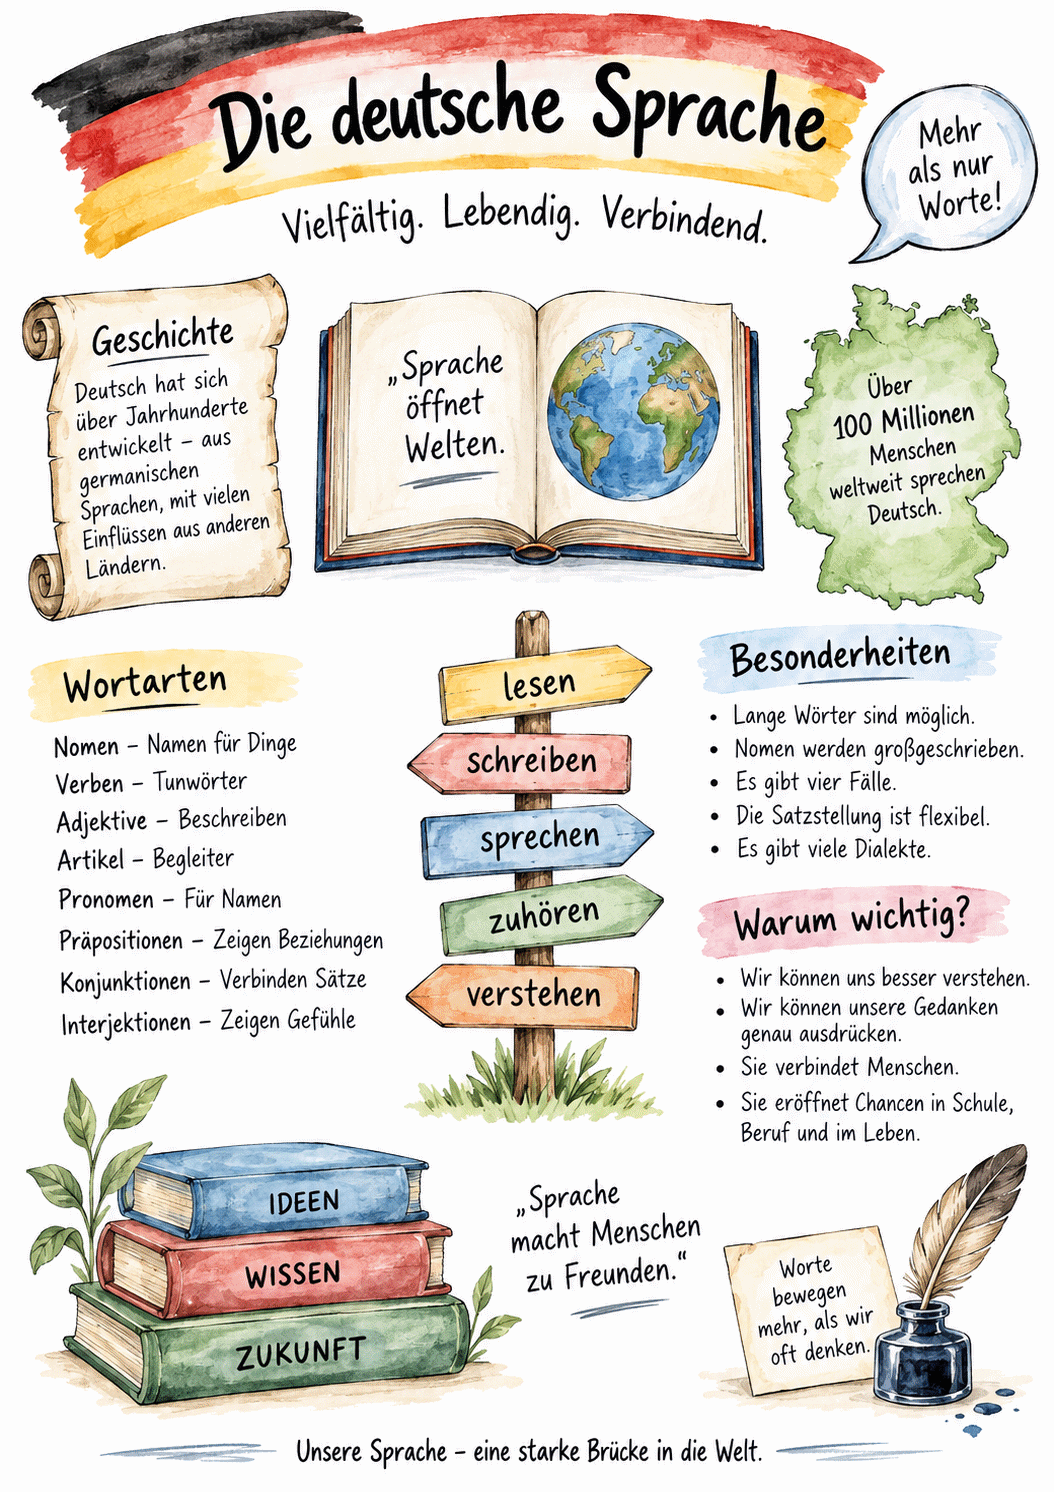 Die deutsche Sprache
Vielfältig. Lebendig. Verbindend.
Mehr
als nur
Worte!
Geschichte
Deutsch hat sich
über Jahrhunderte
entwickelt – aus
germanischen
Sprachen, mit vielen
Einflüssen aus anderen
Ländern.
„Sprache
öffnet
Welten.
Über
100 Millionen
Menschen
weltweit sprechen
Deutsch.
Wortarten
Nomen – Namen für Dinge
Verben – Tunwörter
Adjektive – Beschreiben
Artikel – Begleiter
Pronomen – Für Namen
Präpositionen – Zeigen Beziehungen
Konjunktionen – Verbinden Sätze
Interjektionen – Zeigen Gefühle
lesen
schreiben
sprechen
zuhören
verstehen
Besonderheiten
• Lange Wörter sind möglich.
• Nomen werden großgeschrieben.
• Es gibt vier Fälle.
• Die Satzstellung ist flexibel.
• Es gibt viele Dialekte.
Warum wichtig?
• Wir können uns besser verstehen.
• Wir können unsere Gedanken
genau ausdrücken.
• Sie verbindet Menschen.
• Sie eröffnet Chancen in Schule,
Beruf und im Leben.
IDEEN
WISSEN
ZUKUNFT
„Sprache
macht Menschen
zu Freunden.“
Worte
bewegen
mehr, als wir
oft denken.
Unsere Sprache – eine starke Brücke in die Welt.